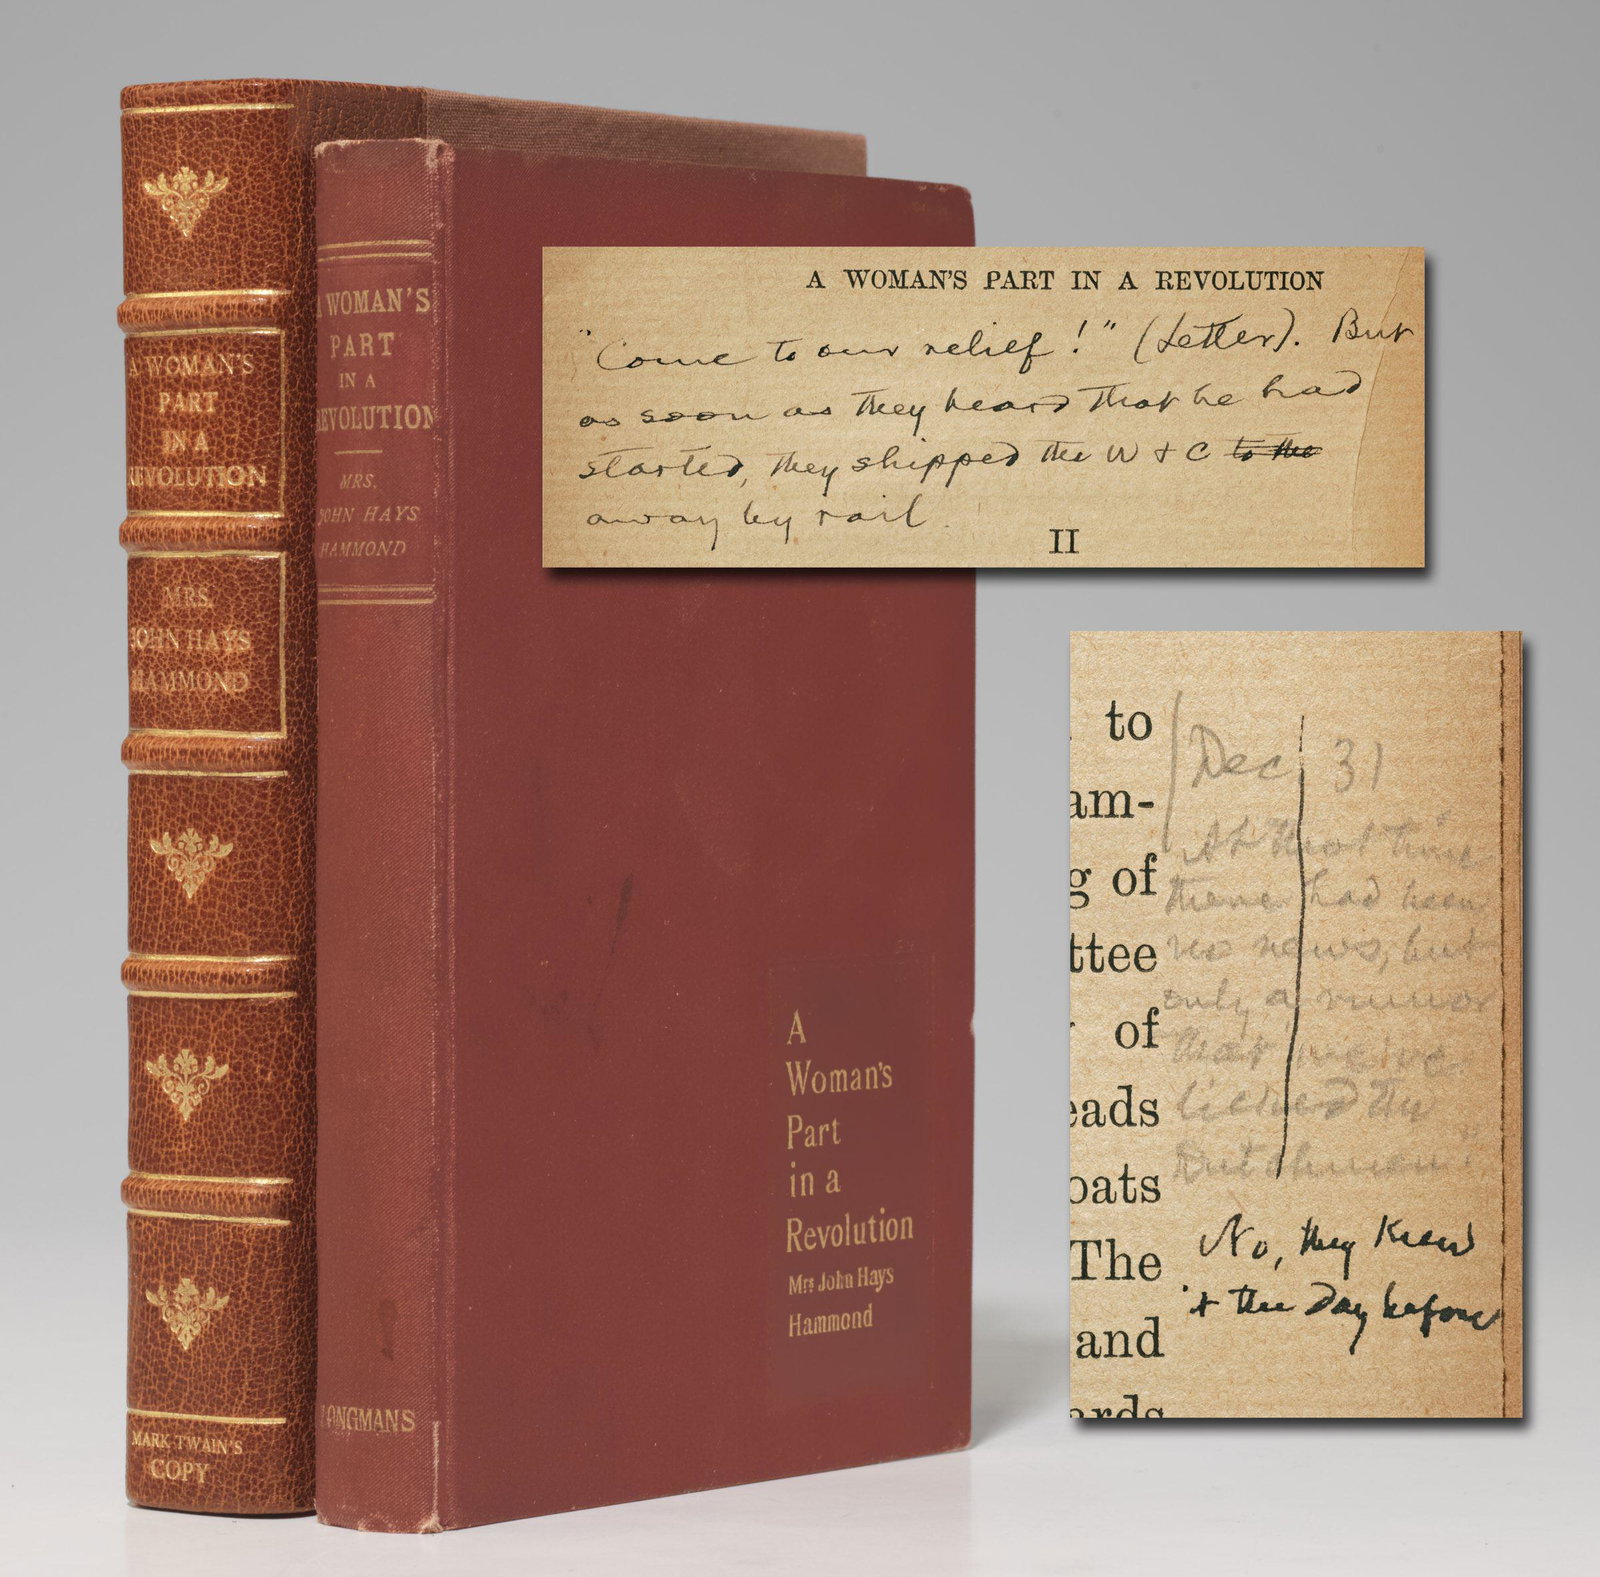 A WOMAN'S
PART
IN A
REVOLUTION
MRS.
JOHN HAYS
HAMMOND
MARK TWAIN'S
COPY
A WOMAN'S
PART
IN A
REVOLUTION
MRS.
JOHN HAYS
HAMMOND
LONGMANS
A
Woman's
Part
in a
Revolution
Mrs John Hays
Hammond
A WOMAN'S PART IN A REVOLUTION
"Come to our relief!" (Letter). But
as soon as they heard that he had
started, they shipped the W & C to the
away by rail.
II
to
am-
g of
ttee
of
eads
oats
The
and
ards
Dec 31
At that time
there had been
no news, but
only a rumor
that we've
licked the
Dutchmen."
No, they knew
it the day before